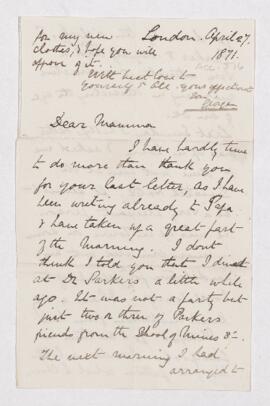 for my new
clothes, I hope you will
approve of it.
With best love to
yourself & all your affectionate
son
London. April 27.
1871.
Dear Mamma
I have hardly time
to do more than thank you
for your last letter, as I have
been writing already to Papa
& have taken up a great part
of the Morning. I dont
think I told you that I dined
at Dr Parkers a little while
ago. It was not a party but
just two or three of Parkers
friends from the School of Mines &c.
The next morning I had
arranged to